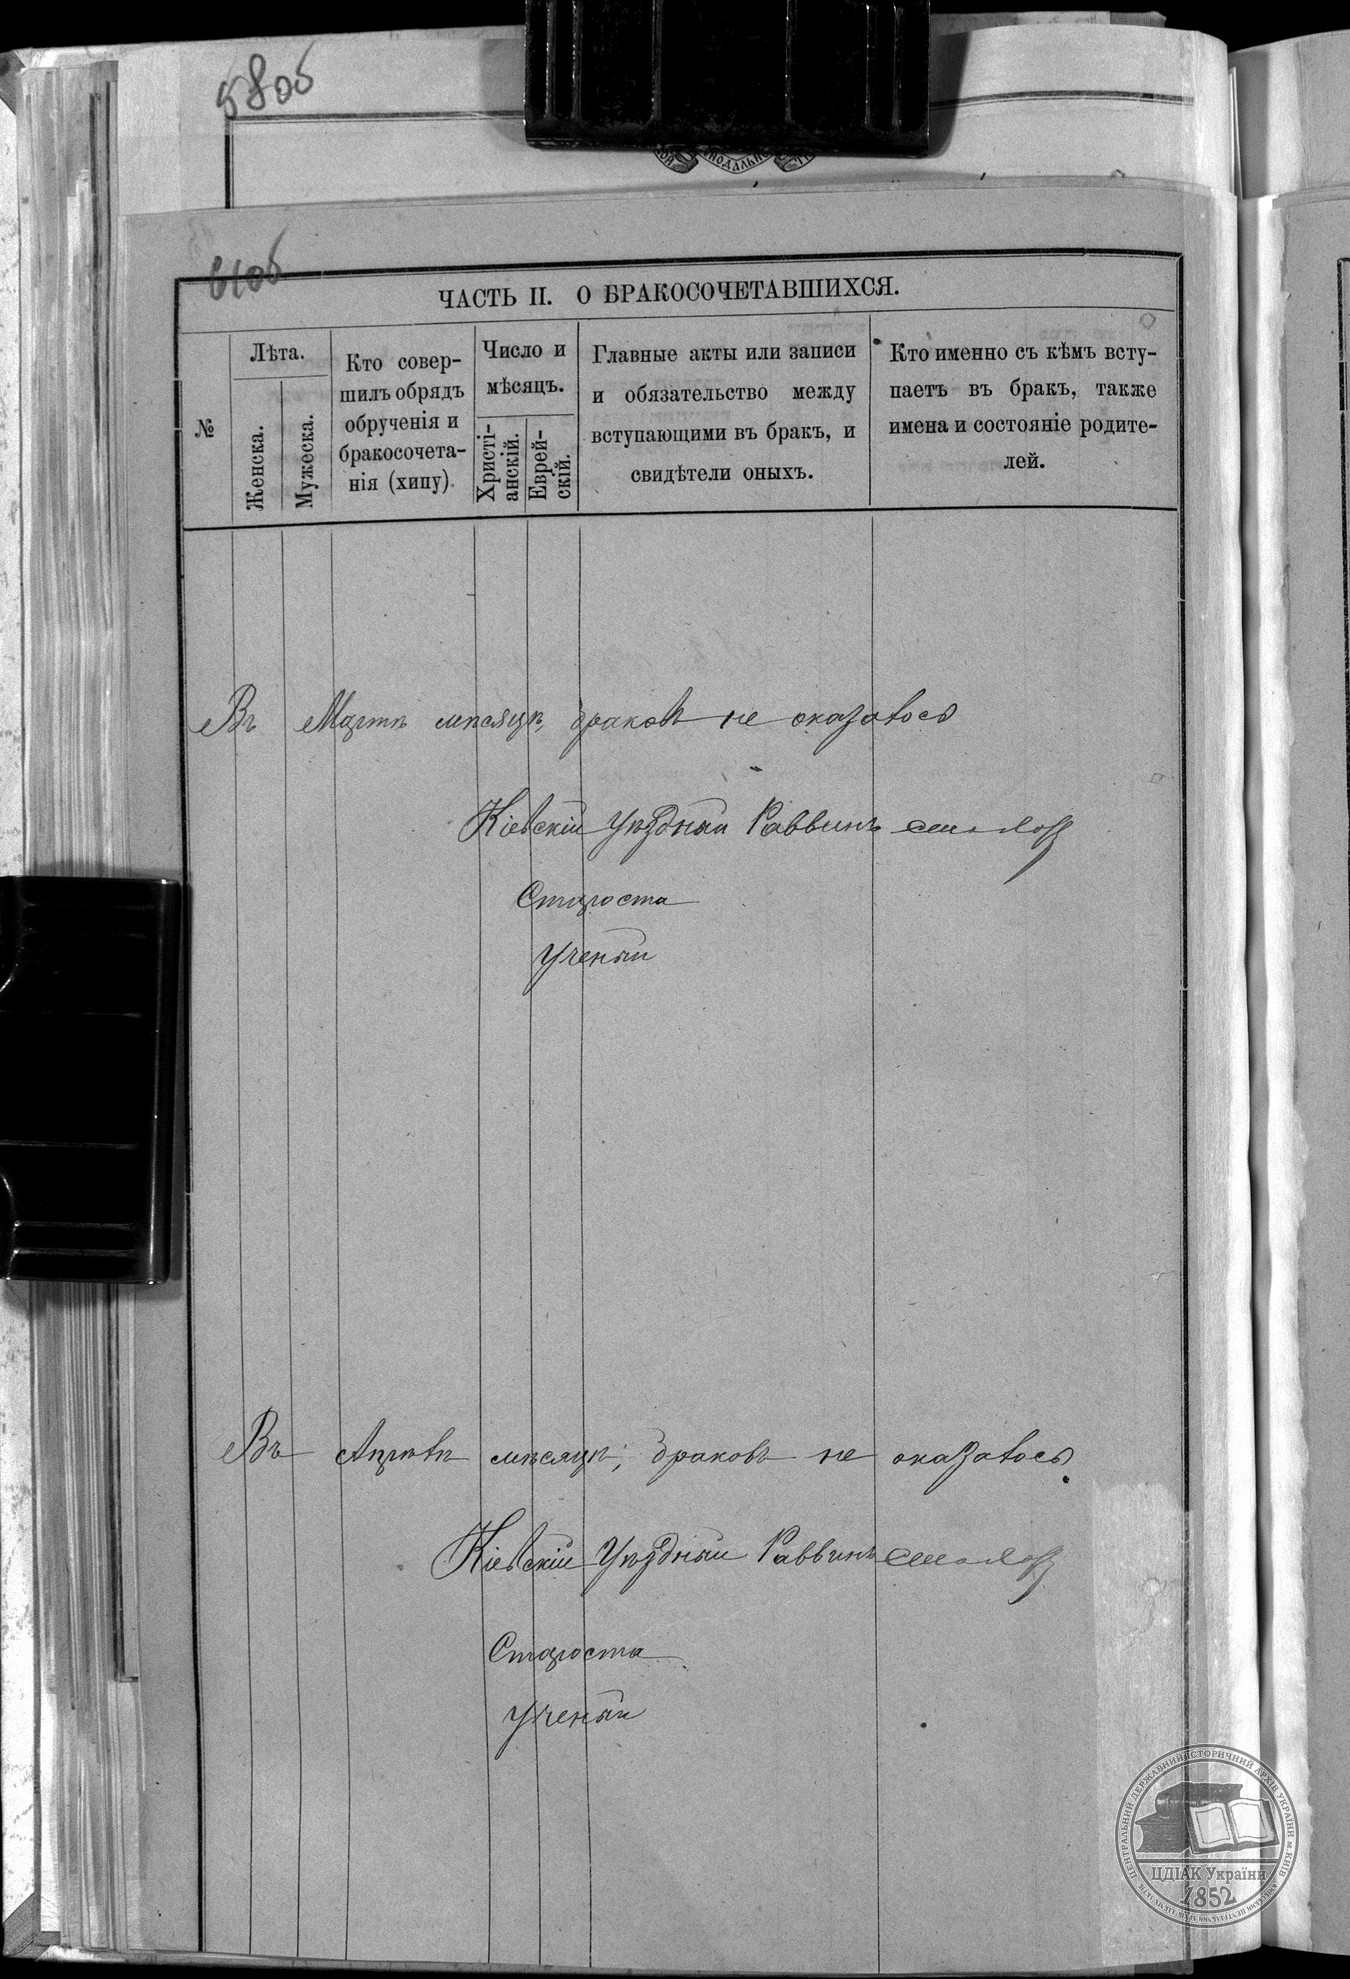 580б
610б
ЧАСТЬ II. О БРАКОСОЧЕТАВШИХСЯ.
№
Лѣта.
Женска.
Мужеска.
Кто совер-
шилъ обрядъ
обрученія и
бракосочета-
нія (хипу)
Число и
мѣсяцъ.
Христі-
анскій.
Еврей-
скій.
Главные акты или записи
и обязательство между
вступающими въ бракъ, и
свидѣтели оныхъ.
Кто именно съ кѣмъ всту-
паетъ въ бракъ, также
имена и состояніе родите-
лей.
Въ Мартѣ мѣсяцѣ, браковъ не оказалось
Кіевскій Уѣздный Раввинъ
Староста
Ученый
Въ Апрѣлѣ мѣсяцѣ, браковъ не оказалось
Кіевскій Уѣздный Раввинъ
Староста
Ученый
ЦЕНТРАЛЬНИЙ ДЕРЖАВНИЙ ІСТОРИЧНИЙ АРХІВ УКРАЇНИ м. КИЇВ
ЦДІАК України
1852